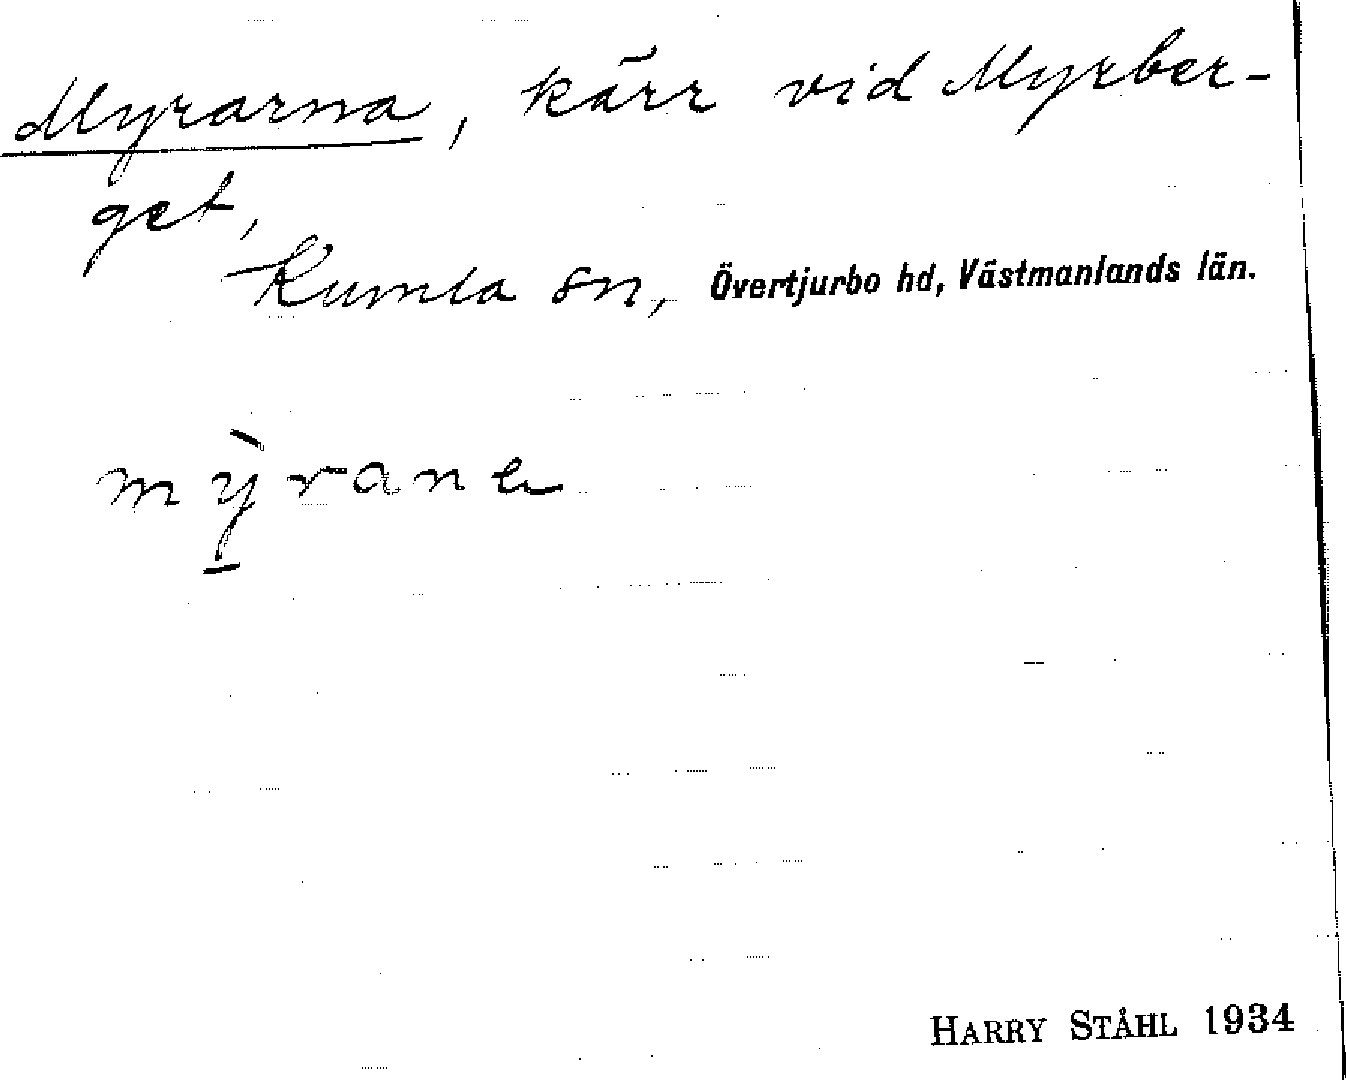 Myrarna, kärr vid Myrber-
get,
Kumla sn, Övertjurbo hd, Västmanlands län.
mỳ̱rane
HARRY STÅHL 1934